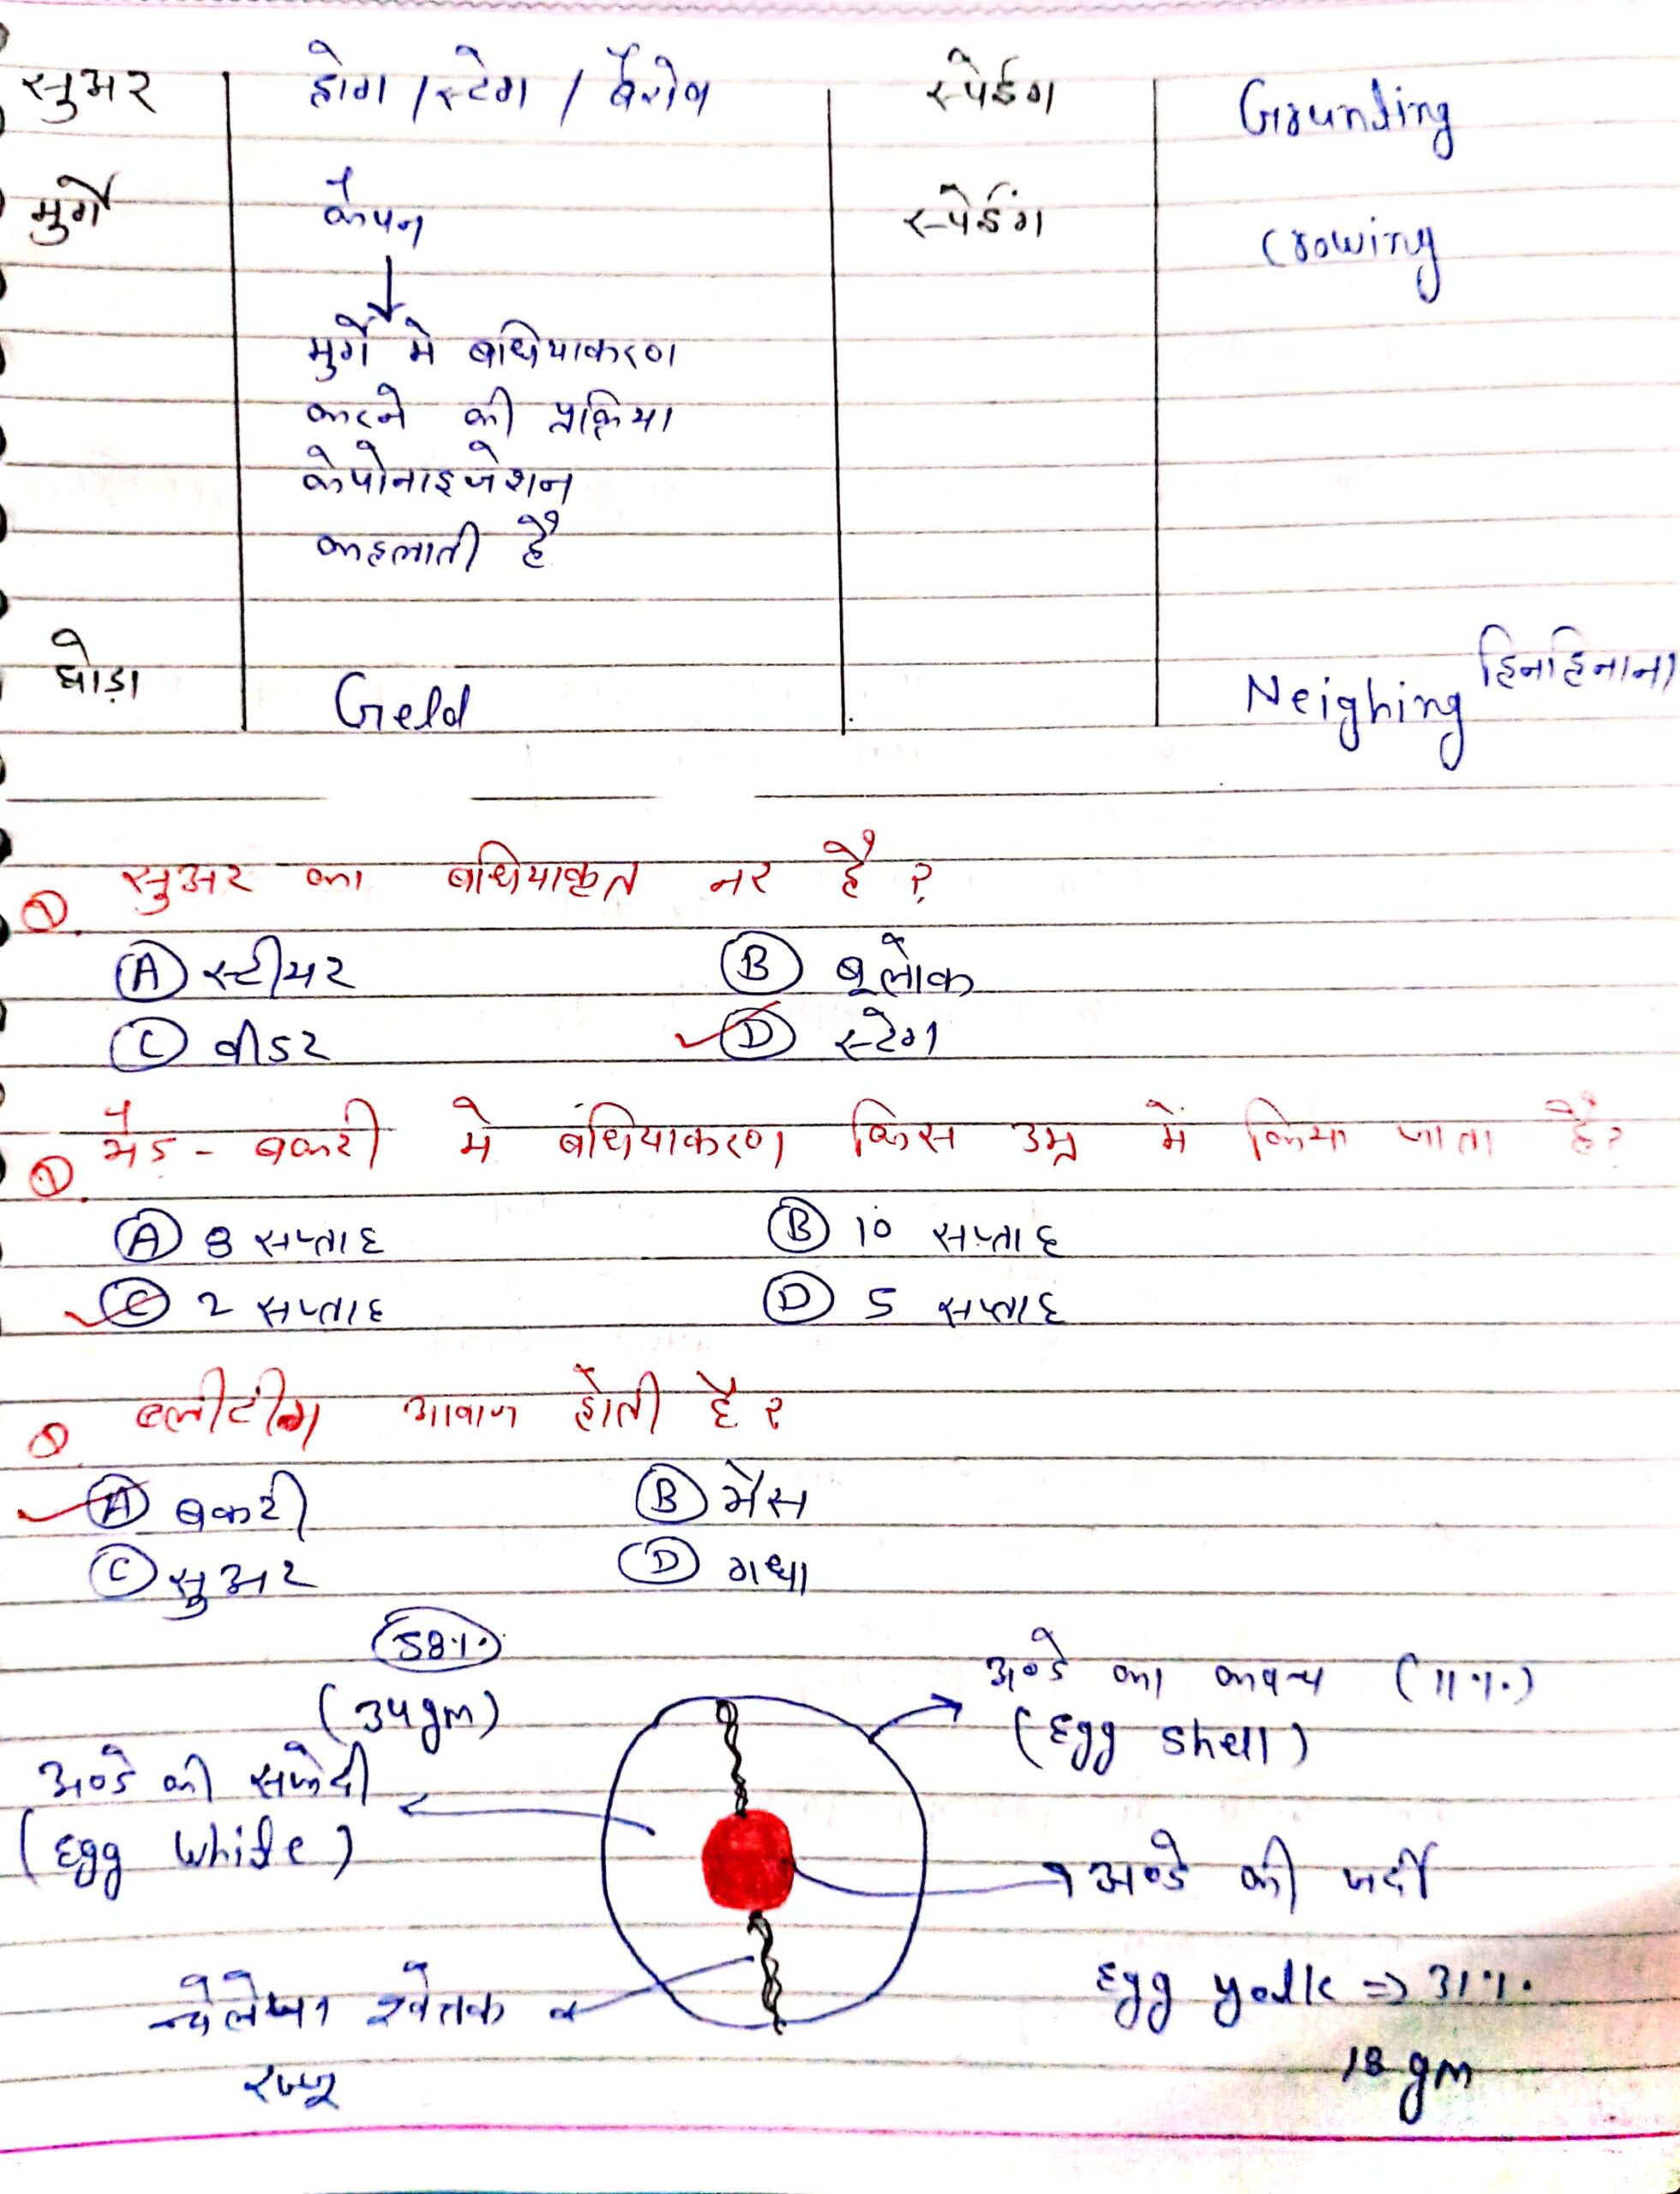 सुअर होग / स्टेग / बैरोव स्पेईंग Grunting
मुर्गे कैपन स्पेइंग Crowing
मुर्गे मे बधियाकरण
करने की प्रक्रिया
केपोनाइजेशन
कहलाती है
घोड़ा Geld Neighing हिनहिनाना
Q. सुअर का बधियाकृत नर है ?
(A) स्टीयर (B) बूलोक
(C) वीडर (D) स्टेग
Q. भैड - बकरी मे बंधियाकरण किस उम्र में किया जाता है?
(A) 8 सप्ताह (B) 10 सप्ताह
(C) 2 सप्ताह (D) 5 सप्ताह
Q ब्लीटींग आवाज होती है ?
(A) बकरी (B) भैस
(C) सुअर (D) गधा
58%.
(34gm)
अण्डे का कवच (11%.)
(Egg shell)
अण्डे की सफेदी
(Egg White)
अण्डे की जर्दी
Egg yolk => 31%.
18 gm
चेलेजा श्वेतक
रज्जू